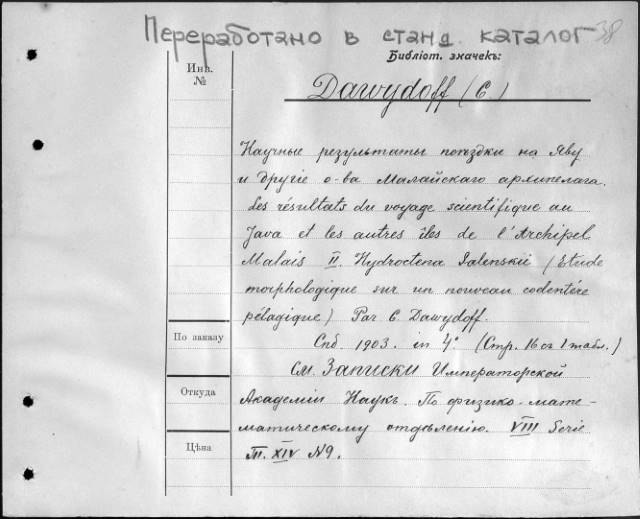 Переработано в станд. каталог 38
Библіот. значекъ:
Инв.
№
Dawydoff (C.)
Научные результаты поѣздки на Яву
и другіе о-ва Малайскаго архипелага.
Les résultats du voyage scientifique au
Java et les autres îles de l'Archipel
Malais II. Hydroctena Salenskii (Etude
morphologique sur un nouveau codentére
pélagique) Par C. Dawydoff.
По заказу
Спб. 1903. in 4° (Стр. 16 съ 1 табл.)
См. Записки Императорской
Откуда
Академіи Наукъ. По физико-мате-
матическому отдѣленію. VIII Serie
Цѣна
Т. XIV №9.